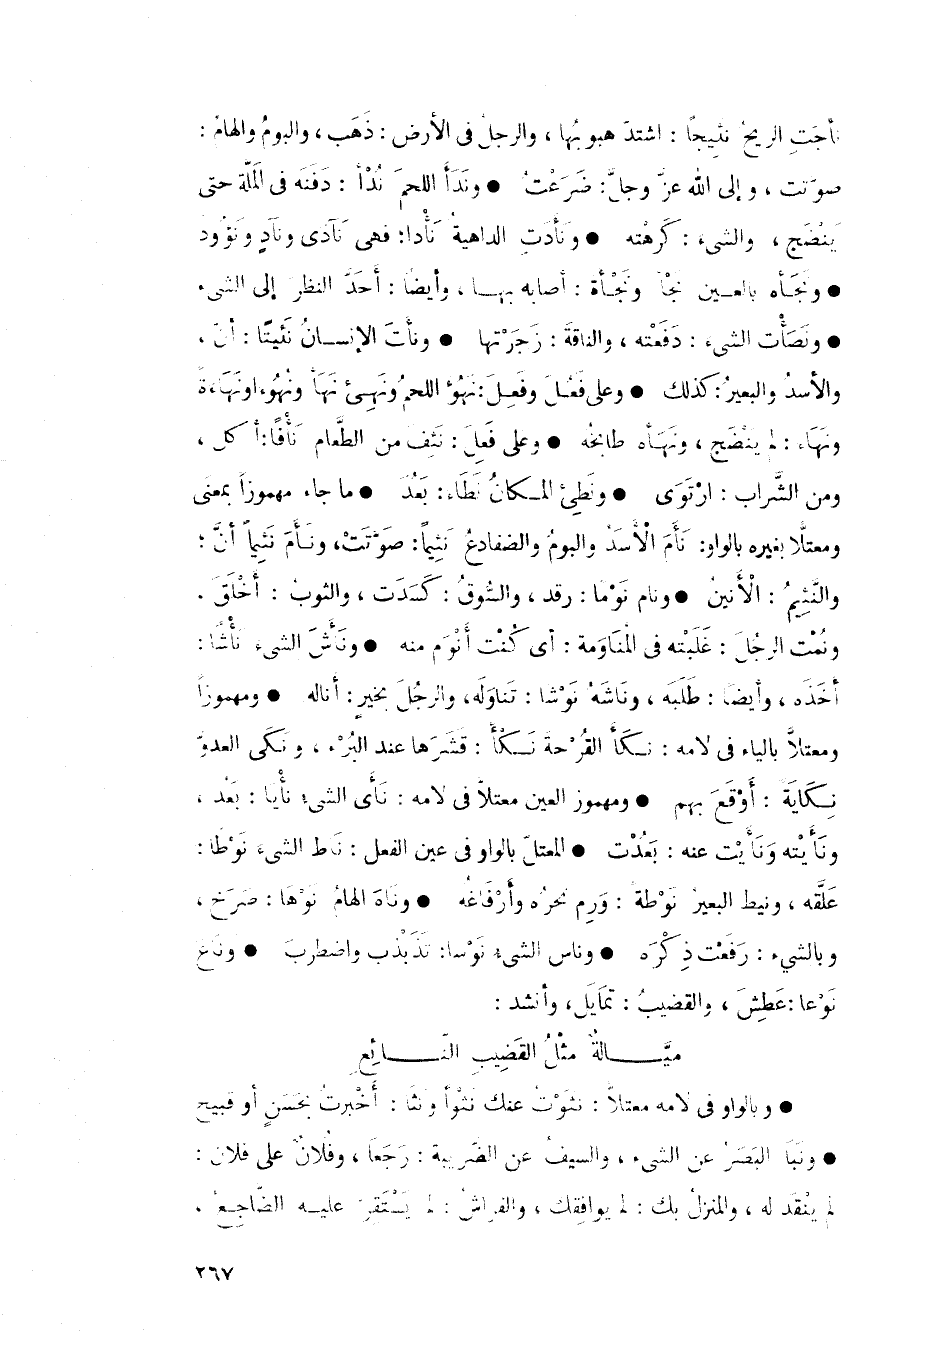 نأجَتِ الريحُ نئيجًا : اشتدّ هبوبُها ، والرجلُ فى الأرض : ذَهَب ، والبومُ والهامُ :
صوّتت ، وإلى الله عزّ وجلَّ : ضَرَعْتُ ● ونَدَأَ اللحمَ نُدْأً : دَفَنَه فى المَلَّة حتى
يَنْضَج ، والشىءَ : كَرِهْته ● ونَأَدَتِ الداهيةُ نَأْدا : فهى نَآدَى ونَآدٍ ونَؤُود
● ونَجَأه بالعــين نَجْأً ونَجْأة : أصابه بهــا ، وأيضًا : أحَدَّ النظرَ إلى الشىء
● ونَصَأْت الشىءَ : دَفَعْته ، والناقةَ : زَجَرْتها ● ونأتَ الإنســانُ نَئيتًا : أنّ ،
والأسدُ والبعيرُ : كذلك ● وعلى فَعُــلَ وفَعِــلَ : نَهُؤَ اللحمُ ونَهِــئَ نَهَأً ونُهُوءا ونَهَاءَةً
ونَهَاء : لم يَنْضَج ، ونَهَــأه طابخُه ● وعلى فَعِلَ : نَئِفَ من الطَّعام نَأْفًا : أكل ،
ومن الشَّراب : ارْتَوَى ● ونَطِئَ المــكانُ نَطَاء : بَعُدَ ● ما جاء مهموزاً بمعنًى
ومعتلًّا بغيره بالواو : نَأَمَ الْأَسَدُ والبومُ والضفادعُ نَئِيماً : صَوّتَتْ ، ونَــأَمَ نَئِيماً أنَّ ؛
والنَّئِيمُ : الْأَنينُ ● ونام نَوْمًا : رقد ، والسُّوقُ : كَسَدَت ، والثوبُ : أَخْلَقَ .
ونُمْت الرجُلَ : غَلَبْته فى المُنَاوَمة : أى كُنْت أَنْوَم منه ● ونَأَشَ الشىءَ نَأْشًا :
أخَذَه ، وأيضًا : طَلَبَه ، ونَاشَهُ نَوْشا : تَناوَلَه ، والرجُلَ بخيرٍ : أناله ● ومهموزاً
ومعتلاًّ بالياء فى لامه : نــكَأَ القُرْحةَ نَــكْأً : قَشَرَها عند البُرْء ، ونَكَى العدوَّ
نِــكَايَةً : أَوْقَعَ بهم ● ومهموز العين معتلاًّ فى لامه : نَأَى الشىءُ نَأْيا : بَعُد ،
ونَأَيْته وَنَأَيْت عنه : بَعُدْت ● المعتلّ بالواو فى عين الفعل : نَاط الشىءَ نَوْطًا :
عَلَّقه ، ونيط البعيرُ نَوْطةً : وَرِم نَحرُه وأَرْفَاغُه ● ونَاهَ الهامُ نَوْهَا : صَرَخ ،
وبالشىء : رَفَعْت ذِكْرَه ● وناس الشىءُ نَوْسًا : تَذَبْذَب واضطربَ ● ونَاعَ
نَوْعًا : عَطِشَ ، والقضيبُ : تمايَل ، وأنشد :
ميَّــــالةٌ مثْلُ القَضِيبِ النّــــائِعِ
● وبالواو فى لامه معتلاًّ : نثوْتُ عنك نَثْواً ونَثًا : أَخْبرتُ بحَسَنٍ أو قبيح
● ونَبَا البَصَرُ عن الشىء ، والسيفُ عن الضَّريبة : رَجَعَا ، وفُلانٌ على فلان :
لم يُنْقَد له ، والمنزلُ بك : لم يوافِقك ، والفراشُ : لم يَــسْتَقِرَّ عليــه الضّاجِــعُ .
٢٦٧